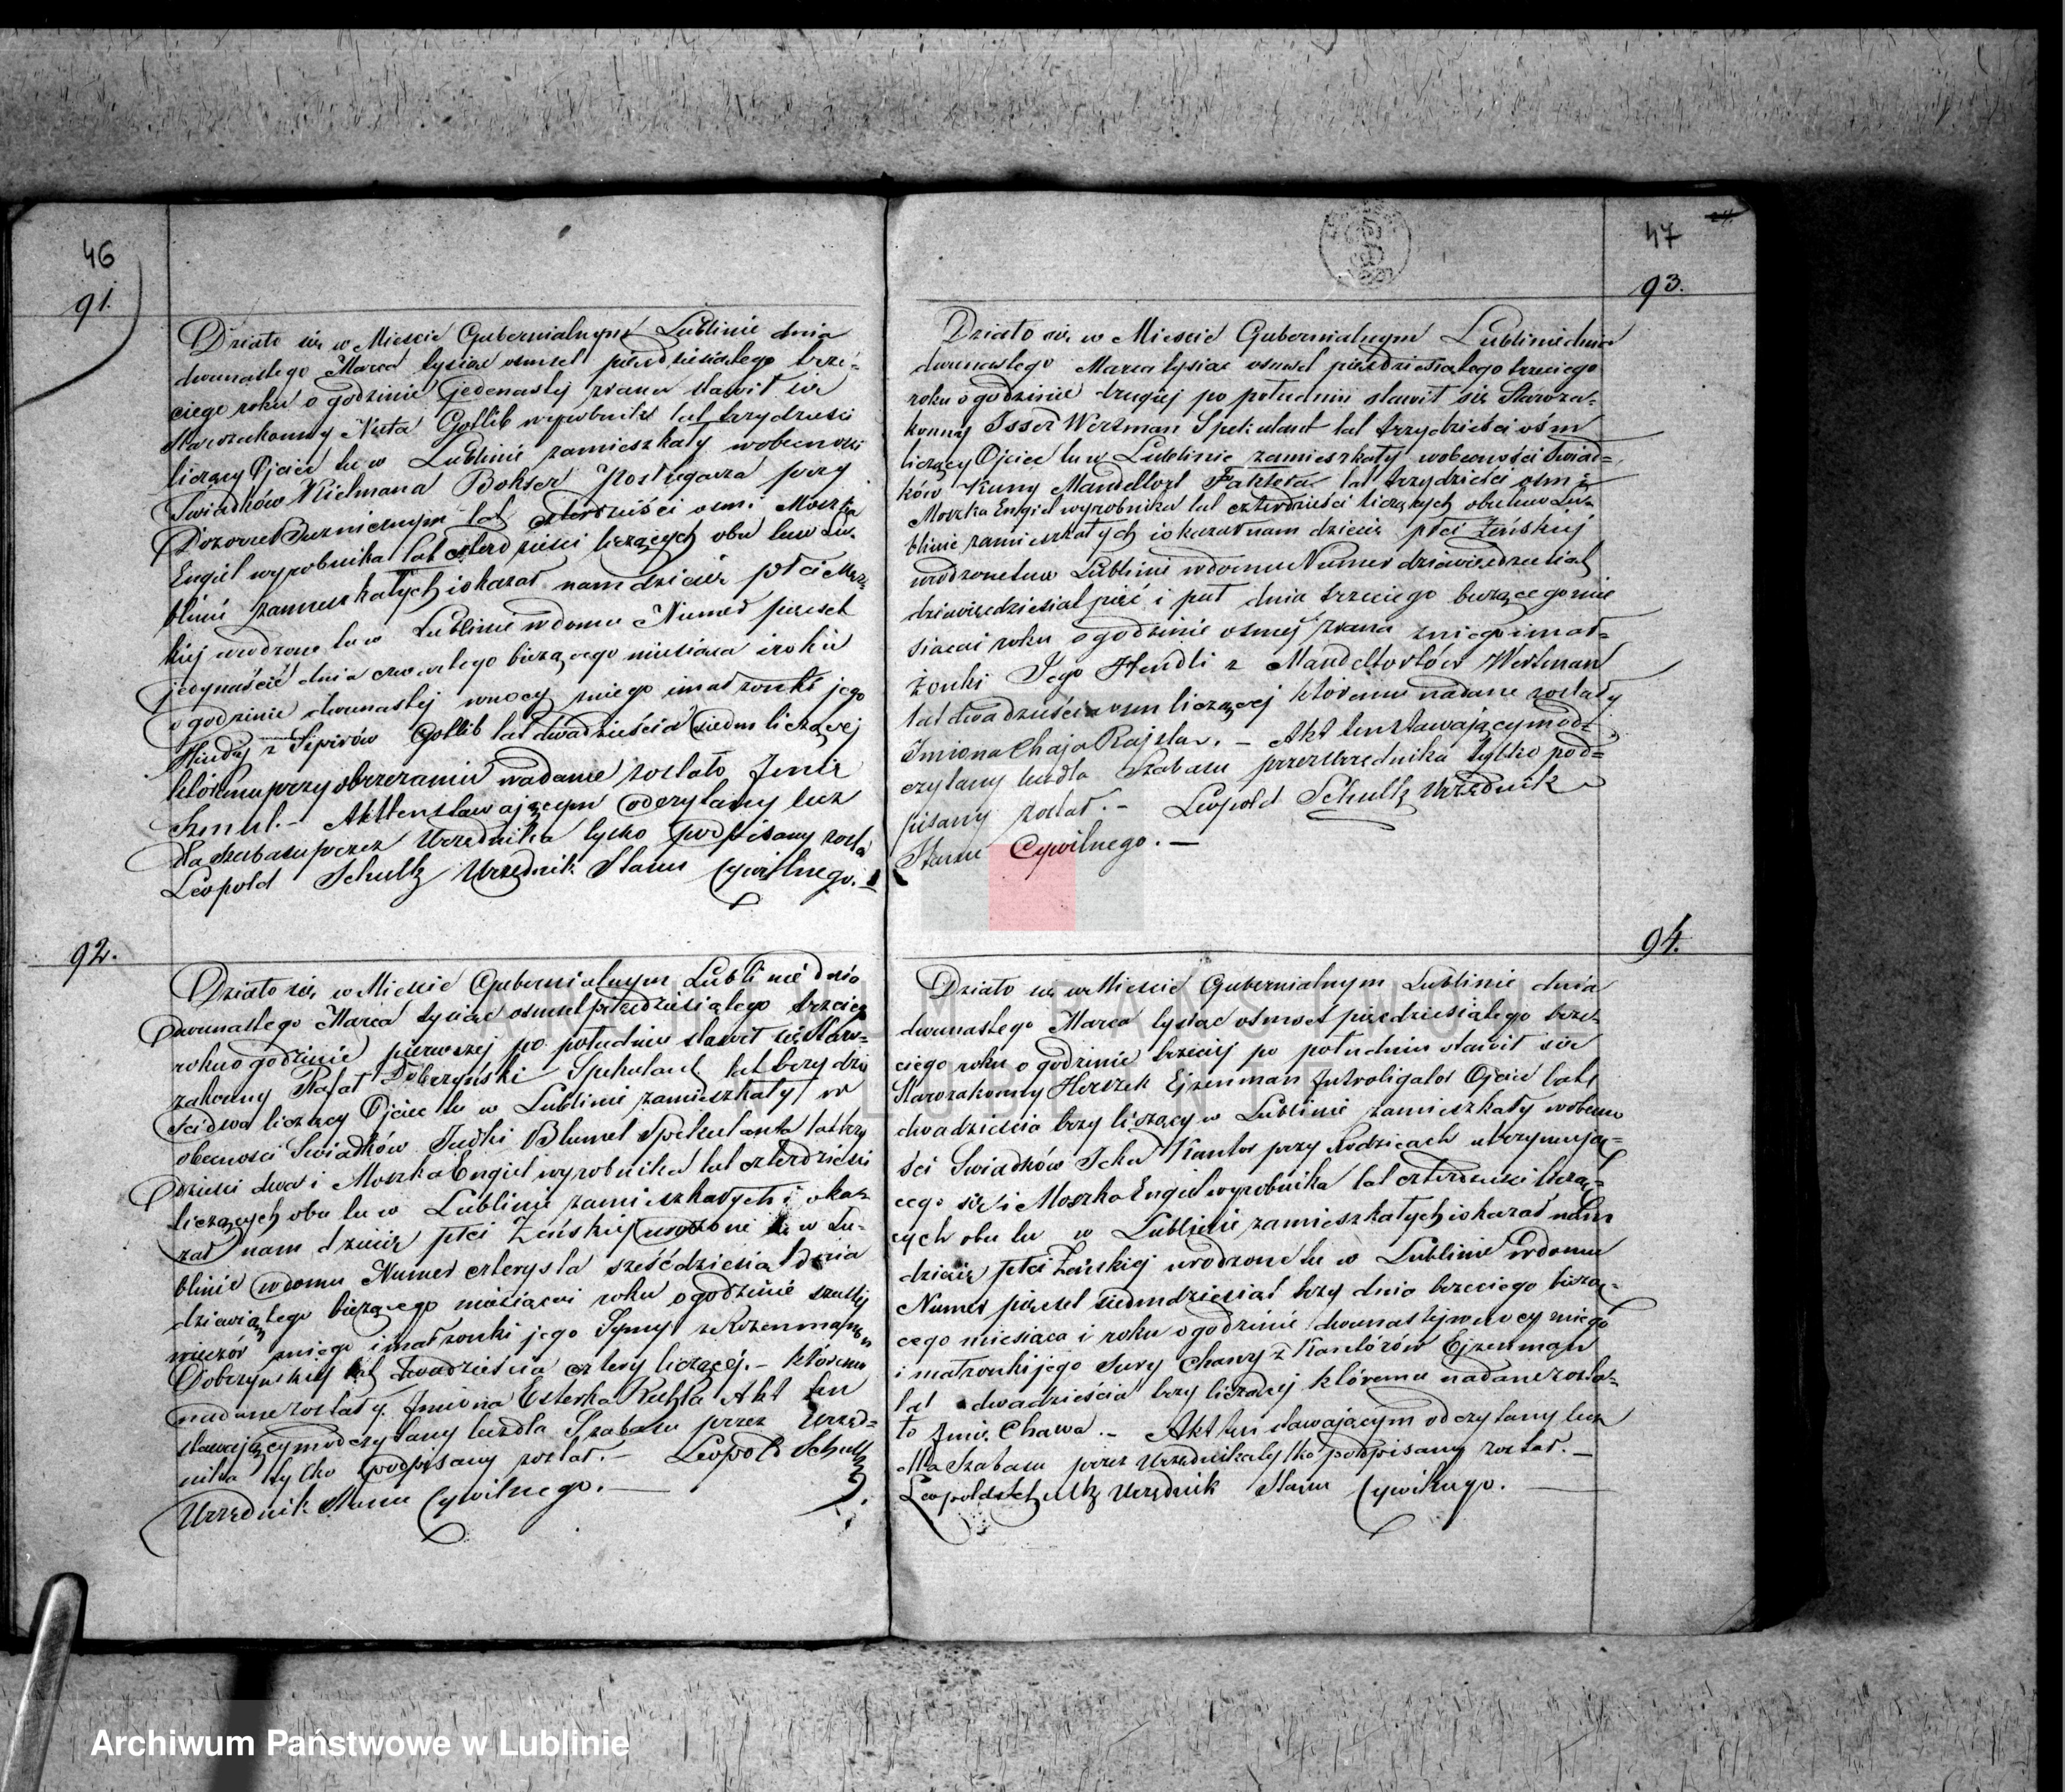 46
91.
Działo się w Mieście Gubernialnym Lublinie dnia
dwunastego Marca tysiąc osmset pięćdziesiątego trze-
ciego roku o godzinie jedenastej zrana stawił się
Starozakonny Nuta Gotlib wyrobnik lat trzydzieści
liczący Ojciec tu w Lublinie zamieszkały w obecności
Swiadków Kielmana Bokser Posługacza przy
Dozorze Buznicznym lat czterdzieści osm i Moszka
Engiel wyrobnika lat czterdzieści liczących obu tu w Lu-
blinie zamieszkałych i okazał nam dziecie płci Męz-
kiej urodzone tu w Lublinie w domu Numer pięćset
jedynaście dnia czwartego bieżącego miesiąca i roku
o godzinie dwunastej w nocy z niego i małżonki jego
Hindy z Gotlib lat dwadzieścia siedm liczącej
któremu przy obrzezaniu nadane zostało Jmie
Szmul. – Akt ten stawającym odczytany lecz
dla szabasu przez Urzędnika tylko podpisany zosta
Leopold Schultz Urzędnik Stanu Cywilnego. –
92.
Działo się w Mieście Gubernialnym Lublinie dnia
Dwunastego Marca tysiąc osmset pięćdziesiątego trzecieg
roku o godzinie pierwszej po południu stawił się Staro-
zakonny Rafał Dobrzyński Spekulant lat trzydzie
ści dwa liczący Ojciec tu w Lublinie zamieszkały w
obecności Swiadków Judki Blumel Spekulanta lat trzy
dzieści dwa i Moszka Engiel wyrobnika lat czterdzieści
liczących obu tu w Lublinie zamieszkałych i oka-
zał nam dziecie płci Zeńskiej urodzone tu w Lu-
blinie w domu Numer czterysta sześćdziesiąt dnia
dziewiątego bieżącego miesiąca i roku o godzinie szustej
wieczór z niego i małżonki jego Symy z Rozenmanow
Dobrzyńskiej lat dwadzieścia cztery liczącej. – któremu
nadane zostały Jmiona Esterka Ruchla Akt ten
stawającym odczytany lecz dla Szabasu przez Urzęd-
nika tylko podpisany został. – Leopold Schultz
Urzędnik Stanu Cywilnego. –
47
93.
Działo się w Mieście Gubernialnym Lublinie dnia
dwunastego Marca tysiąc osmset pięćdziesiątego trzeciego
roku o godzinie drugiej po południu stawił się Staroza-
konny Isser Wertman Spekulant lat trzydzieści ośm
liczący Ojciec tu w Lublinie zamieszkały w obecności Swiad-
ków Kuny Mandeltort Faktora lat trzydzieści ośm i
Moszka Engiel wyrobnika lat czterdzieści liczących obu tu w Lu-
blinie zamieszkałych i okazał nam dziecie płci Żeńskiej
urodzone tu w Lublinie w domu Numer dziewięćdziesiąt
dziewięćdziesiąt pięć i puł dnia trzeciego bieżącego mie
siąca i roku o godzinie osmej zrana z niego i mał-
żonki Jego Hendli z Mandeltortów Wertman
lat dwadzieścia osm liczącej któremu nadane zostały
Jmiona Chaja Rajzla. – Akt ten stawającym od-
czytany lecz dla Szabasu przez Urzędnika tylko pod-
pisany został. – Leopold Schultz Urzędnik
Stanu Cywilnego. –
94.
Działo się w Mieście Gubernialnym Lublinie dnia
dwunastego Marca tysiąc ośmset pięćdziesiątego trze-
ciego roku o godzinie trzeciej po południu stawił się
Starozakonny Herszek Ejzenman Jntroligator Ojciec lat
dwadzieścia trzy liczący w Lublinie zamieszkały w obecno
ści Swiadków Icka Kantor przy Rodzicach utrzymują-
cego się i Moszka Engiel wyrobnika lat czterdzieści liczą-
cych obu tu w Lublinie zamieszkałych i okazał nam
dziecie płci Żeńskiej urodzone tu w Lublinie w domu
Numer pięćset siedmdziesiąt trzy dnia trzeciego bieżą-
cego miesiąca i roku o godzinie dwunastej w nocy z niego
i małżonki jego Sury Chany z Kantorów Ejzenman
lat dwadzieścia trzy liczącej któremu nadane zosta-
ło Jmie Chawa. – Akt ten stawającym odczytany lecz
dla Szabasu przez Urzędnika tylko podpisany został. –
Leopold Schultz Urzędnik Stanu Cywilnego.
ARCHIWUM PAŃSTWOWE
W LUBLINIE
Archiwum Państwowe w Lublinie